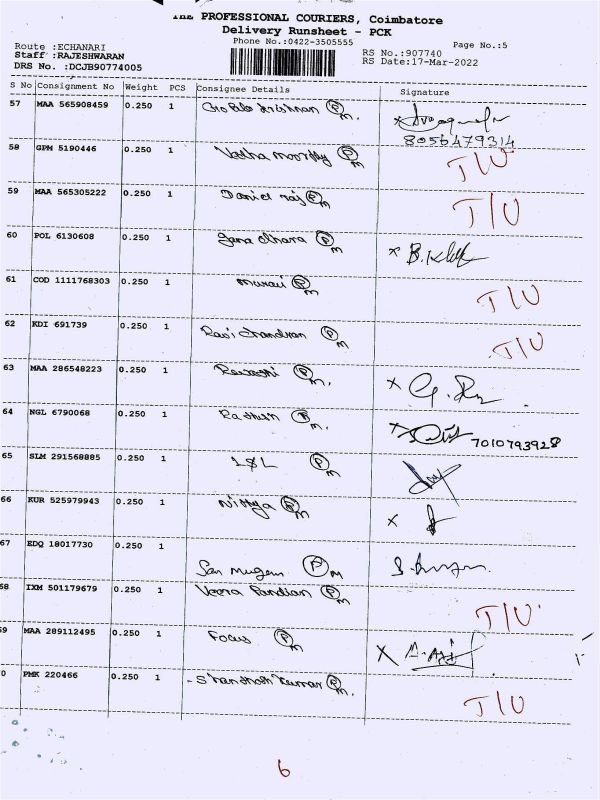 THE PROFESSIONAL COURIERS, Coimbatore
Delivery Runsheet - PCK
Phone No.:0422-3505555
Page No.:5
Route :ECHANARI
RS No.:907740
Staff :RAJESHWARAN
RS Date:17-Mar-2022
DRS No. :DCJB90774005
S No Consignment No Weight PCS Consignee Details Signature
57 MAA 565908459 0.250 1
8056479314
58 GPM 5190446 0.250 1 moorthy P M T/U
59 MAA 565305222 0.250 1 Daniel raj P M T/U
60 POL 6130608 0.250 1 P M
61 COD 1111768303 0.250 1 P M T/U
62 KDI 691739 0.250 1 Ravi chandran P M T/U
63 MAA 286548223 0.250 1 P M.
64 NGL 6790068 0.250 1 P M. 7010793928
65 SLM 291568885 0.250 1 P M
66 KUR 525979943 0.250 1 P M
67 EDQ 18017730 0.250 1
San mugam P M
68 IXM 501179679 0.250 1 Veera Pandian P M T/U
69 MAA 289112495 0.250 1 Focus P M
0 PMK 220466 0.250 1 - Shanthosh Kumar P M. T/U
6